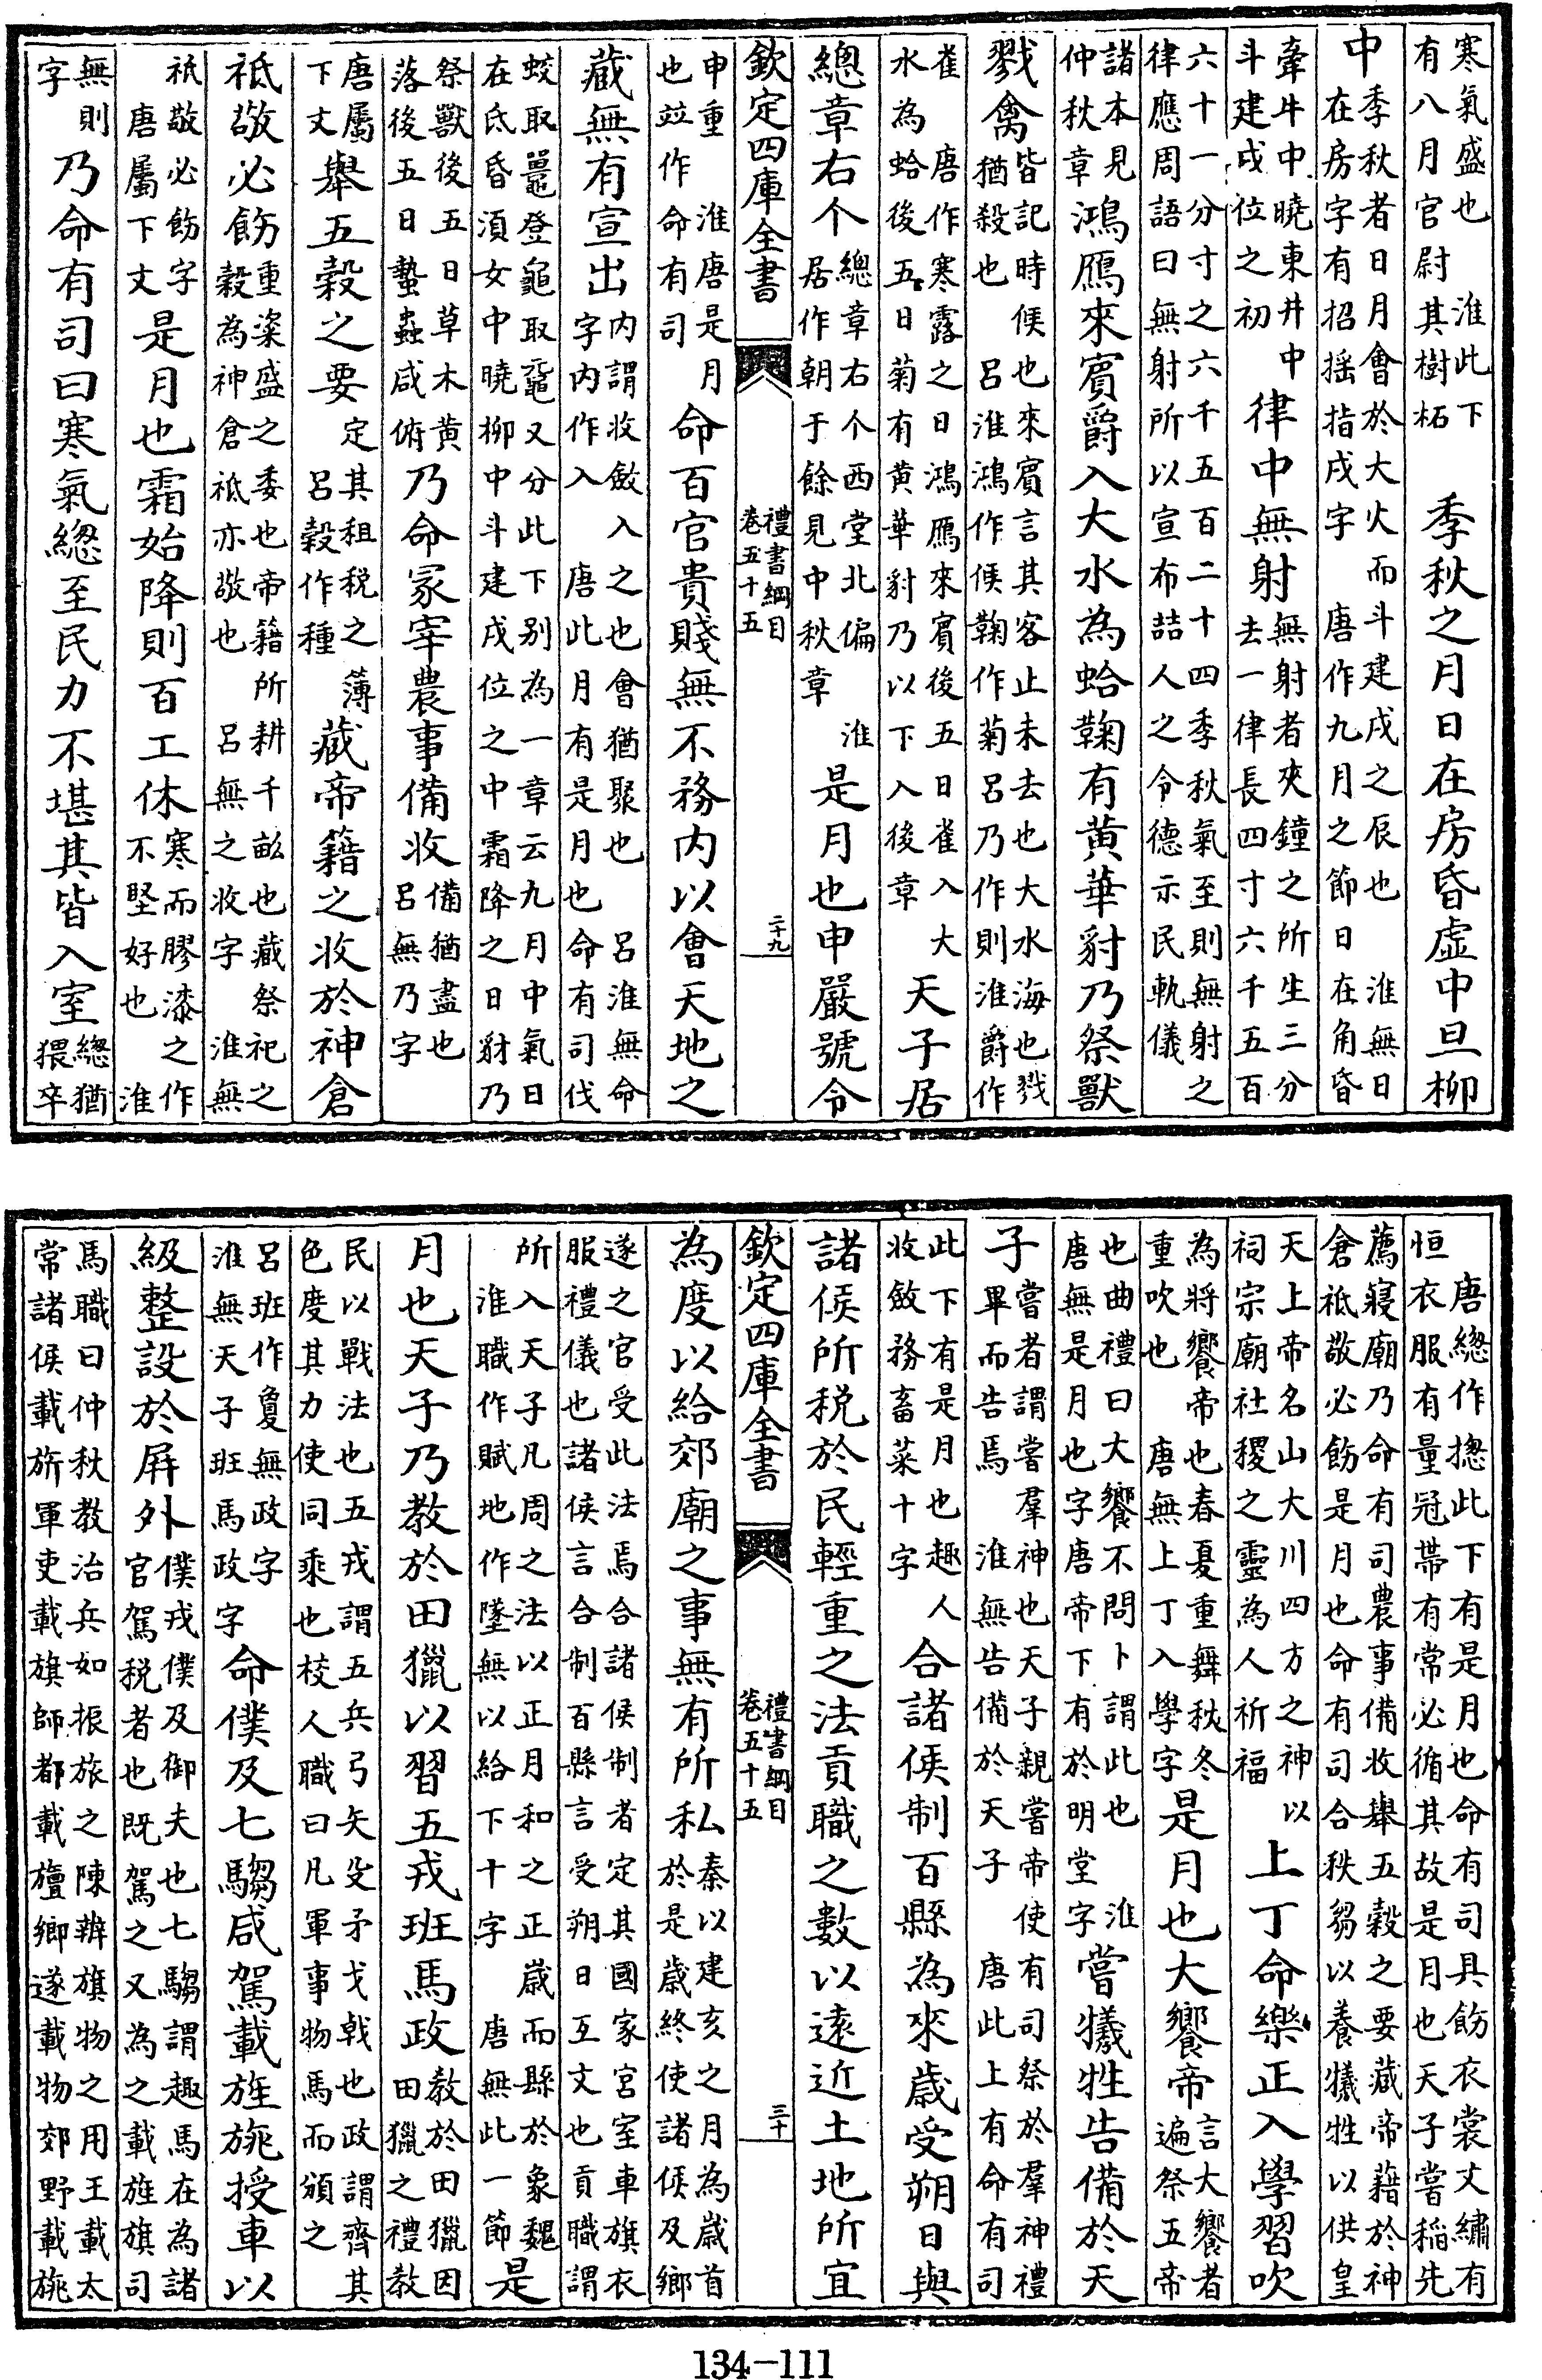 寒氣盛也　淮此下
有八月官尉其樹柘
季秋之月日在房昏虛中旦柳
中
季秋者日月會於大火而斗建戌之辰也　淮無日
在房字有招搖指戌字　唐作九月之節日在角昏
牽牛中曉東井中
斗建戌位之初
律中無射
無射者夾鐘之所生三分
去一律長四寸六千五百
六十一分寸之六千五百二十四季秋氣至則無射之
律應周語曰無射所以宣布喆人之令德示民軌儀
諸本見
仲秋章
鴻鴈來賓爵入大水為蛤鞠有黄華豺乃祭獸
戮禽
皆記時候也來賓言其客止未去也大水海也戮
猶殺也　呂淮鴻作候鞠作菊呂乃作則淮爵作
雀　唐作寒露之日鴻鴈來賓後五日雀入大
水為蛤後五日菊有黄華豺乃以下入後章
天子居
總章右个
總章右个西堂北偏　淮
居作朝于餘見中秋章
是月也申嚴號令
欽定四庫全書
禮書綱目
卷五十五
二十九
申重　淮唐是月
也竝作命有司
命百官貴賤無不務内以會天地之
藏無有宣出
内謂收斂入之也會猶聚也　呂淮無命
字内作入　唐此月有是月也命有司伐
蛟取鼉登龜取黿又分此下别為一章云九月中氣日
在氐昏湏女中曉柳中斗建戌位之中霜降之日豺乃
祭獸後五日草木黄
落後五日蟄蟲咸俯
乃命冢宰農事備收
備猶盡也
呂無乃字
唐屬
下丈
舉五穀之要
定其租税之簿
呂穀作種
藏帝籍之收於神倉
祗敬必飭
重粢盛之委也帝籍所耕千畝也藏祭祀之
穀為神倉祗亦敬也　呂無之收字　淮無
祇敬必飭字
唐屬下丈
是月也霜始降則百工休
寒而膠漆之作
不堅好也　淮
無則
字
乃命有司曰寒氣總至民力不堪其皆入室
總猶
猥卒
唐總作揔此下有是月也命有司具飭衣裳丈繡有
恒衣服有量冠帶有常必循其故是月也天子嘗稻先
薦寢廟乃命有司農事備收舉五穀之要藏帝藉於神
倉祗敬必飭是月也命有司合秩芻以養犧牲以供皇
天上帝名山大川四方之神以
祠宗廟社稷之靈為人祈福
上丁命樂正入學習吹
為將饗帝也春夏重舞秋冬
重吹也　唐無上丁入學字
是月也大饗帝
言大饗者
遍祭五帝
也曲禮曰大饗不問卜謂此也　淮
唐無是月也字唐帝下有於明堂字
嘗犧牲告備於天
子
嘗者謂嘗羣神也天子親嘗帝使有司祭於羣神禮
畢而告焉　淮無告備於天子　唐此上有命有司
此下有是月也趣人
收斂務畜菜十字
合諸侯制百縣為來歲受朔日與
諸侯所税於民輕重之法貢職之數以遠近土地所宜
欽定四庫全書
禮書綱目
卷五十五
三十
為度以給郊廟之事無有所私
秦以建亥之月為歲首
於是歲終使諸侯及鄉
遂之官受此法焉合諸侯制者定其國家宮室車旗衣
服禮儀也諸侯言合制百縣言受朔日互文也貢職謂
所入天子凡周之法以正月和之正歲而縣於象魏
淮職作賦地作墬無以給下十字　唐無此一節
是
月也天子乃教於田獵以習五戎班馬政
教於田獵因
田獵之禮教
民以戰法也五戎謂五兵弓矢殳矛戈戟也政謂齊其
色度其力使同乘也校人職曰凡軍事物馬而頒之
呂班作𢿱無政字
淮無天子班馬政字
命僕及七騶咸駕載旌旐授車以
級整設於屏外
僕戎僕及御夫也七騶謂趣馬在為諸
官駕税者也既駕之又為之載旌旗司
馬職曰仲秋教治兵如振旅之陳辨旗物之用王載太
常諸侯載旂軍吏載旗師都載旜鄉遂載物郊野載旐
134-111